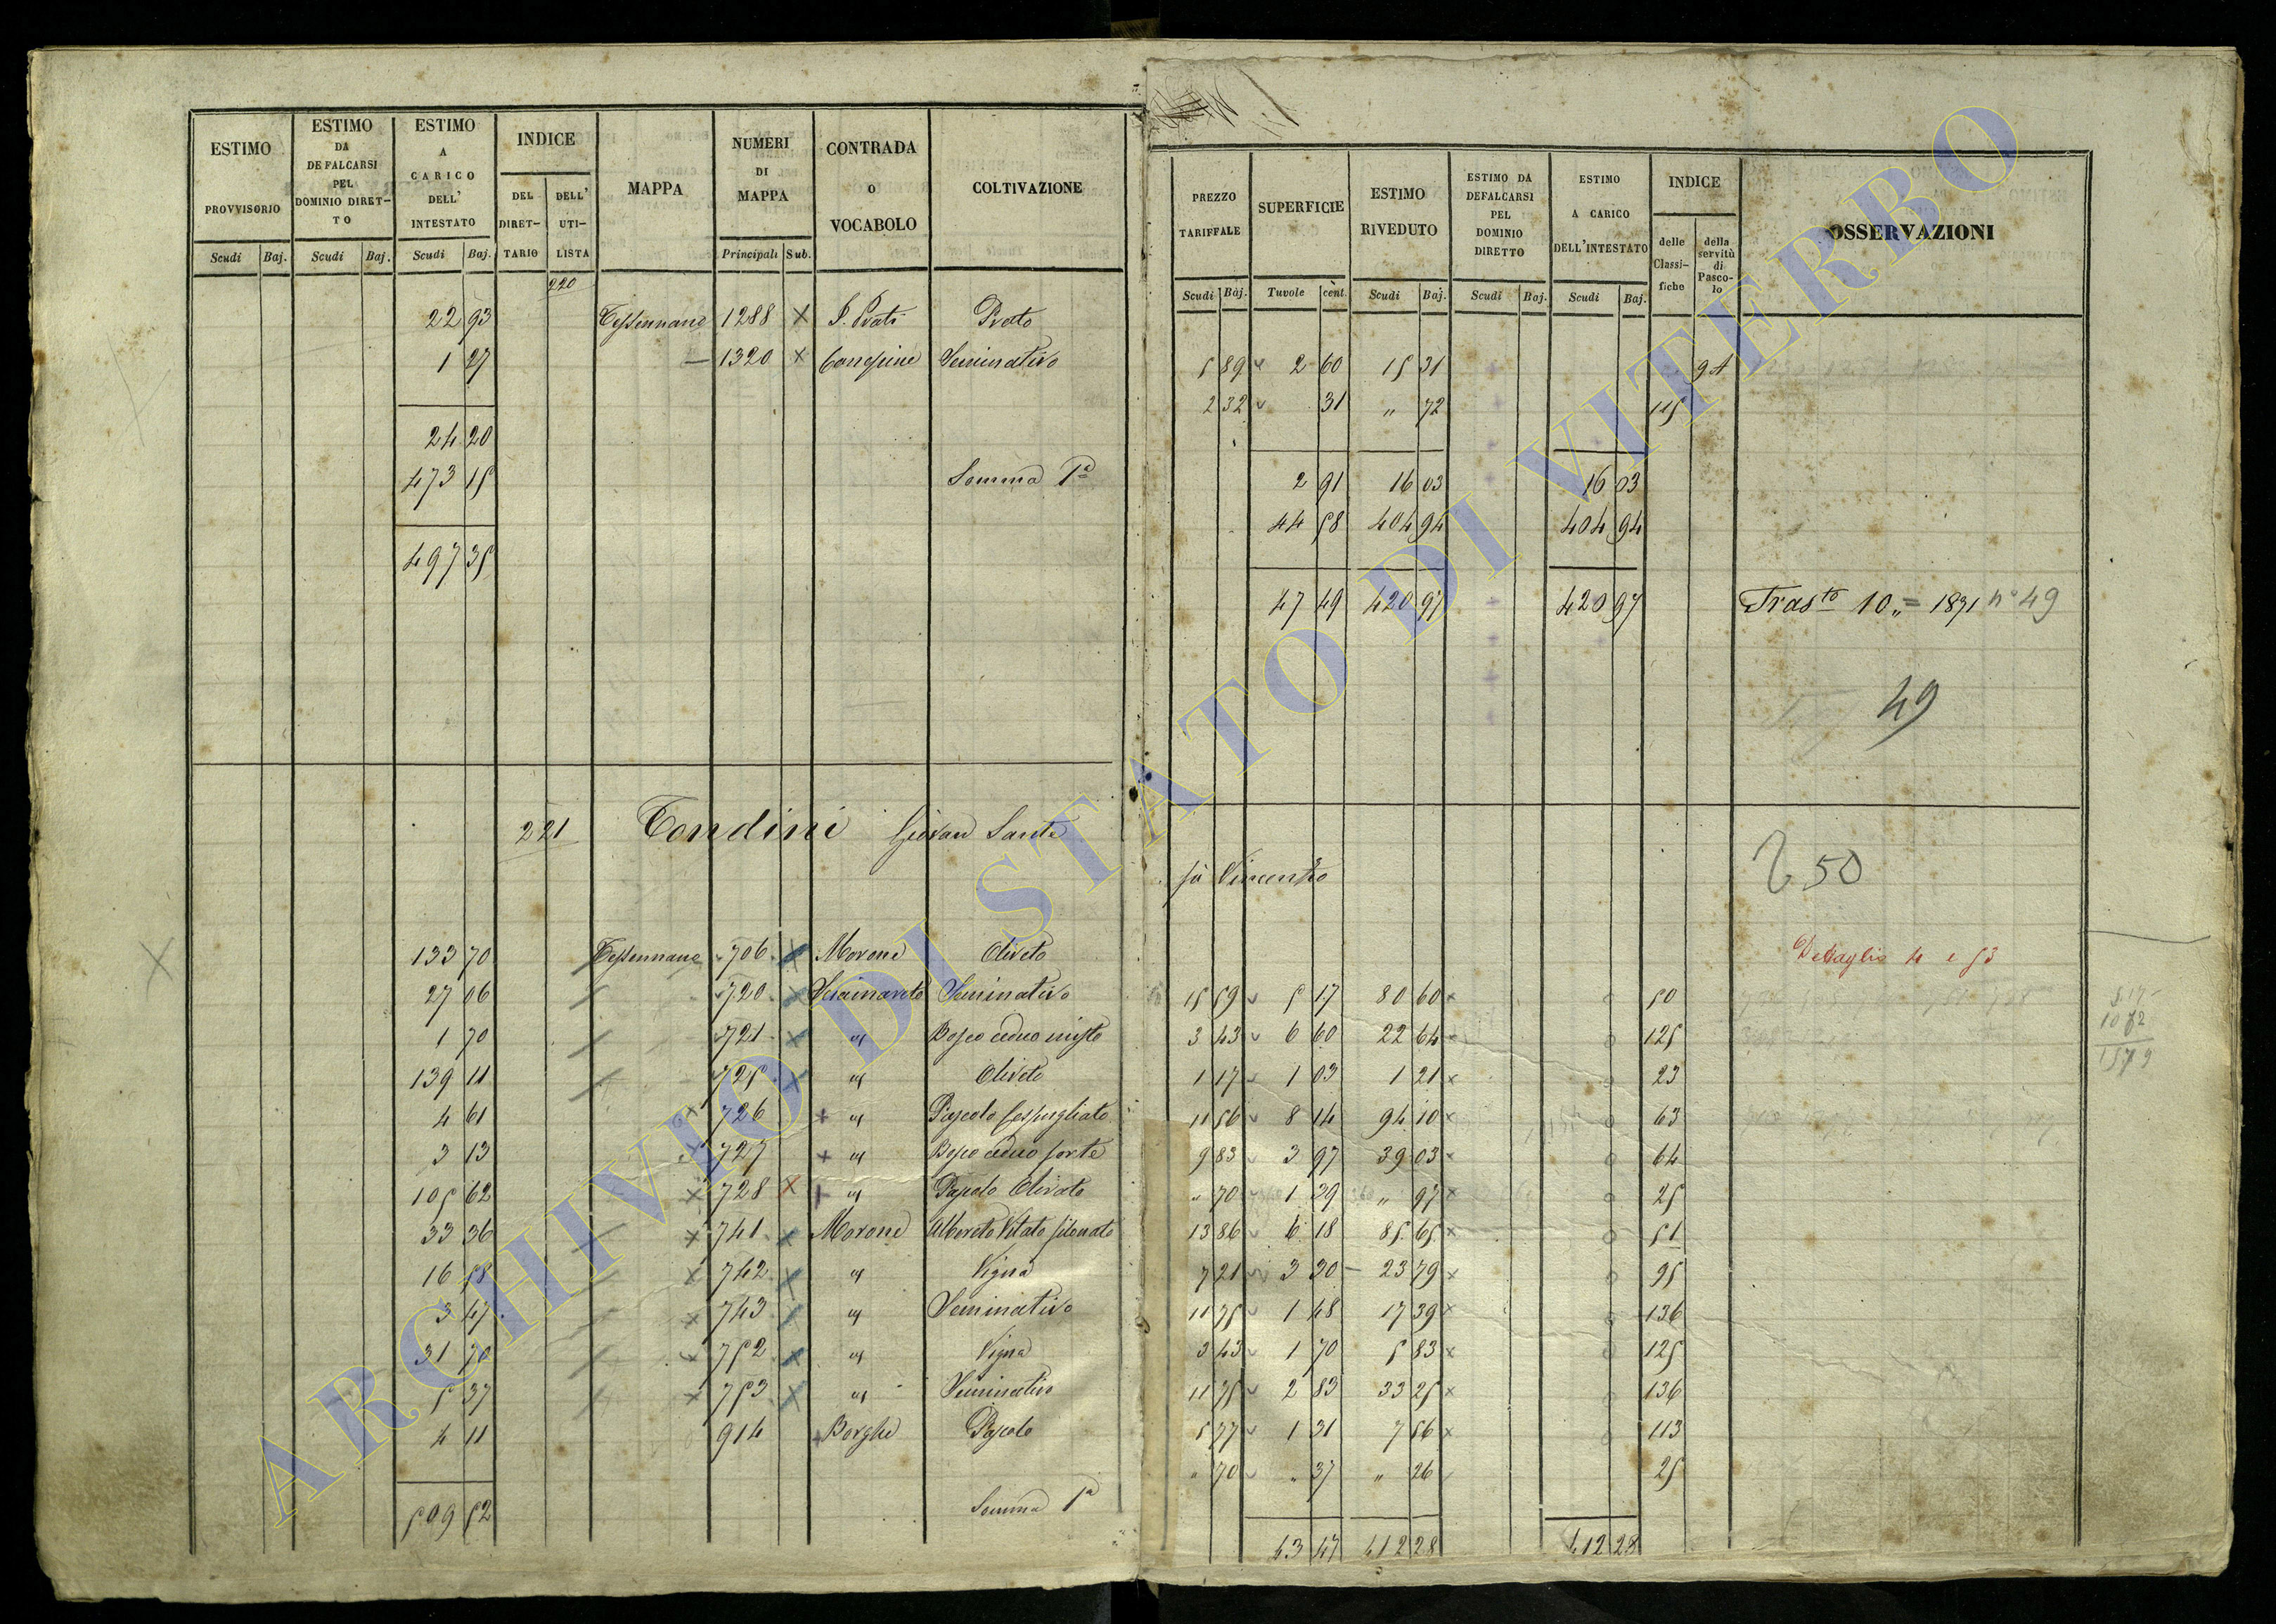 ESTIMO PROVVISORIO Scudi Baj.
ESTIMO DA DEFALCARSI PEL DOMINIO DIRET-TO Scudi Baj.
ESTIMO A CARICO DELL' INTESTATO Scudi Baj.
INDICE DEL DIRET-TARIO DELL' UTI-LISTA
MAPPA
NUMERI DI MAPPA Principali Sub.
CONTRADA O VOCABOLO
COLTIVAZIONE
220
22 93 Tessennano 1288 X Prati Prato
1 27 — 1320 X Canepine Seminativo
24 20
473 15 Somma 1ª
497 35
221 Tondini Giovan Sante
133 70 Tessennano 706 Morone Oliveto
27 06 720 Seminativo
1 70 721 " Bosco ceduo misto
139 11 725 " Oliveto
4 61 726 " Pascolo cespugliato
3 13 727 " Bosco ceduo forte
105 62 728 X " Pascolo Olivato
33 36 741 Morone Alboreto Vitato
16 58 742 " Vigna
3 47 743 " Seminativo
31 70 752 " Vigna
5 37 753 " Seminativo
4 11 914 Borghe Pascolo
509 52 Somma 1ª
PREZZO TARIFFALE Scudi Baj.
SUPERFICIE Tavole cent.
ESTIMO RIVEDUTO Scudi Baj.
ESTIMO DA DEFALCARSI PEL DOMINIO DIRETTO Scudi Baj.
ESTIMO A CARICO DELL'INTESTATO Scudi Baj.
INDICE delle Classi-fiche della servitù di Pasco-lo
OSSERVAZIONI
5 89 2 60 15 31 94
2 32 31 " 72 115
2 91 16 03 16 03
44 58 404 94 404 94
47 49 420 97 420 97 Trasto 10 = 1871 n° 49
49
fù Vincenzo
50
Dettaglio 4 e 53
15 59 5 17 80 60 50
3 43 6 60 22 64 125
1 17 1 03 1 21 23
11 56 8 14 94 10 63
9 83 3 97 39 03 64
" 70 1 39 " 97 25
13 86 6 18 85 65 51
7 21 3 30 23 79 95
11 75 1 48 17 39 136
3 43 1 70 5 83 125
11 75 2 83 33 25 136
5 77 1 31 7 56 113
" 70 " 37 " 26 25
43 47 412 28 412 28
5 17
10 62
15 79
ARCHIVIO DI STATO DI VITERBO